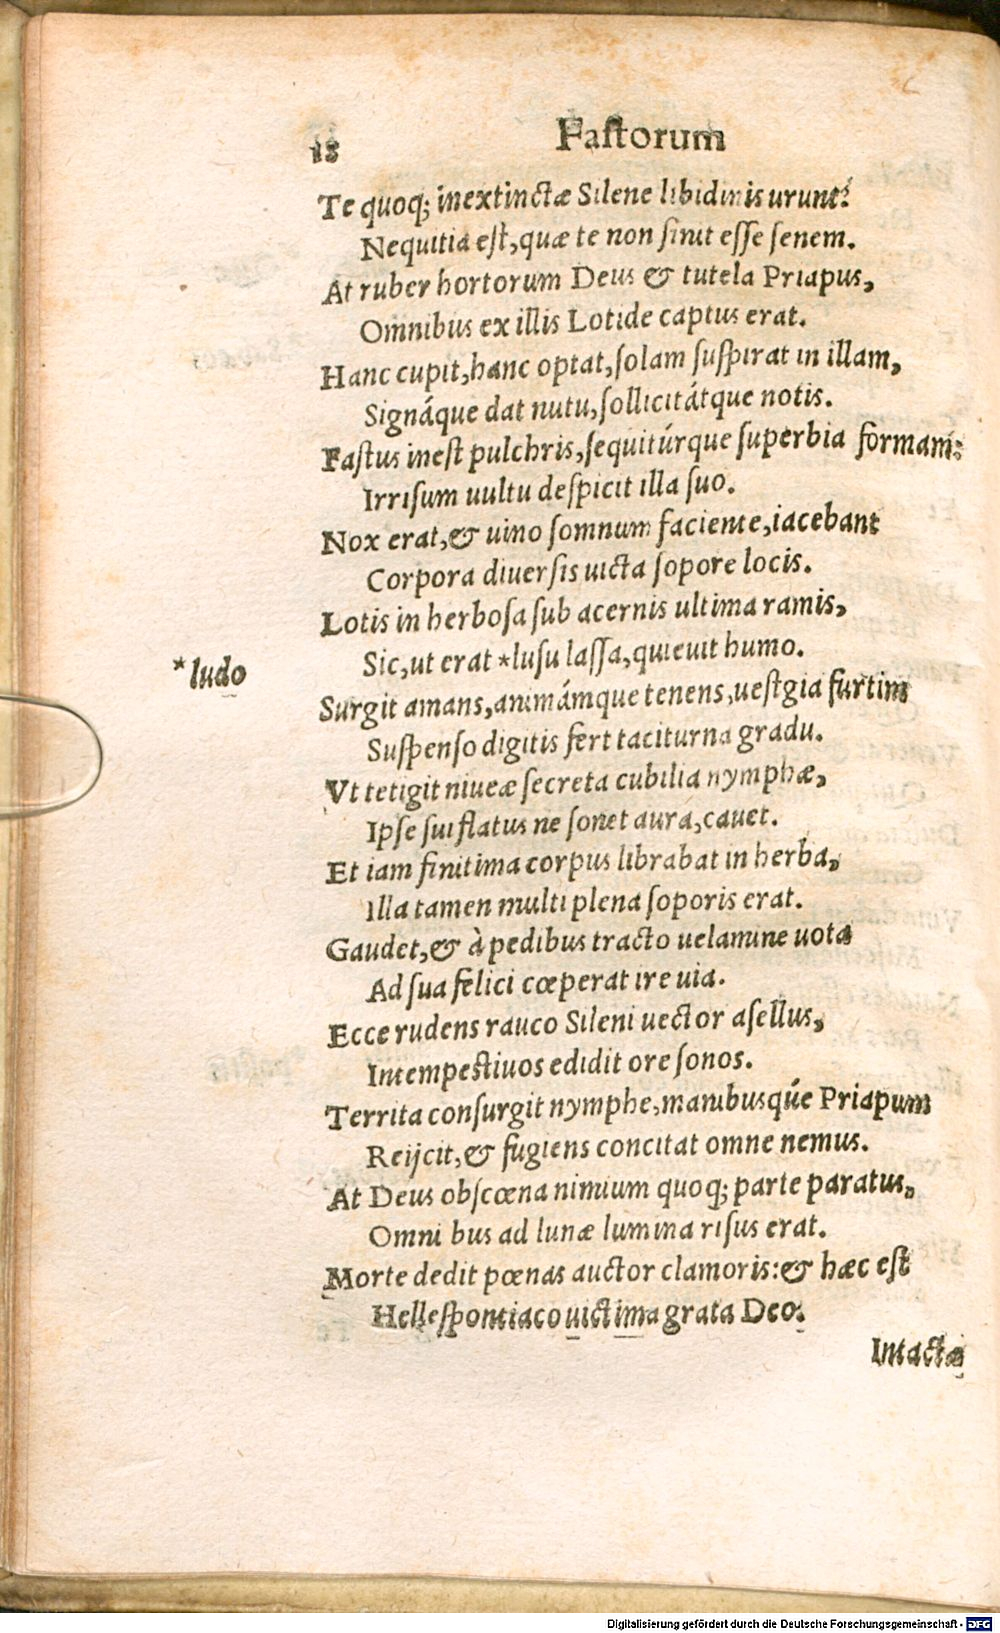 18 Fastorum
Te quoq; inextinctæ Silene libidinis urunt:
Nequitia est, quæ te non sinit esse senem.
At ruber hortorum Deus & tutela Priapus,
Omnibus ex illis Lotide captus erat.
Hanc cupit, hanc optat, solam suspirat in illam,
Signáque dat nutu, sollicitátque notis.
Fastus inest pulchris, sequitúrque superbia formam:
Irrisum uultu despicit illa suo.
Nox erat, & uino somnum faciente, iacebant
Corpora diuersis uicta sopore locis.
Lotis in herbosa sub acernis ultima ramis,
Sic, ut erat *lusu lassa, quieuit humo.
*ludo
Surgit amans, animámque tenens, uestgia furtim
Suspenso digitis fert taciturna gradu.
Vt tetigit niueæ secreta cubilia nymphæ,
Ipse sui flatus ne sonet aura, cauet.
Et iam finitima corpus librabat in herba,
Illa tamen multi plena soporis erat.
Gaudet, & à pedibus tracto uelamine uota
Ad sua felici cœperat ire uia.
Ecce rudens rauco Sileni uector asellus,
Intempestiuos edidit ore sonos.
Territa consurgit nymphe, manibusqúe Priapum
Reijcit, & fugiens concitat omne nemus.
At Deus obscœna nimium quoq; parte paratus,
Omni bus ad lunæ lumina risus erat.
Morte dedit pœnas auctor clamoris: & hæc est
Hellespontiaco uictima grata Deo.
Intactæ
Digitalisierung gefördert durch die Deutsche Forschungsgemeinschaft - DFG